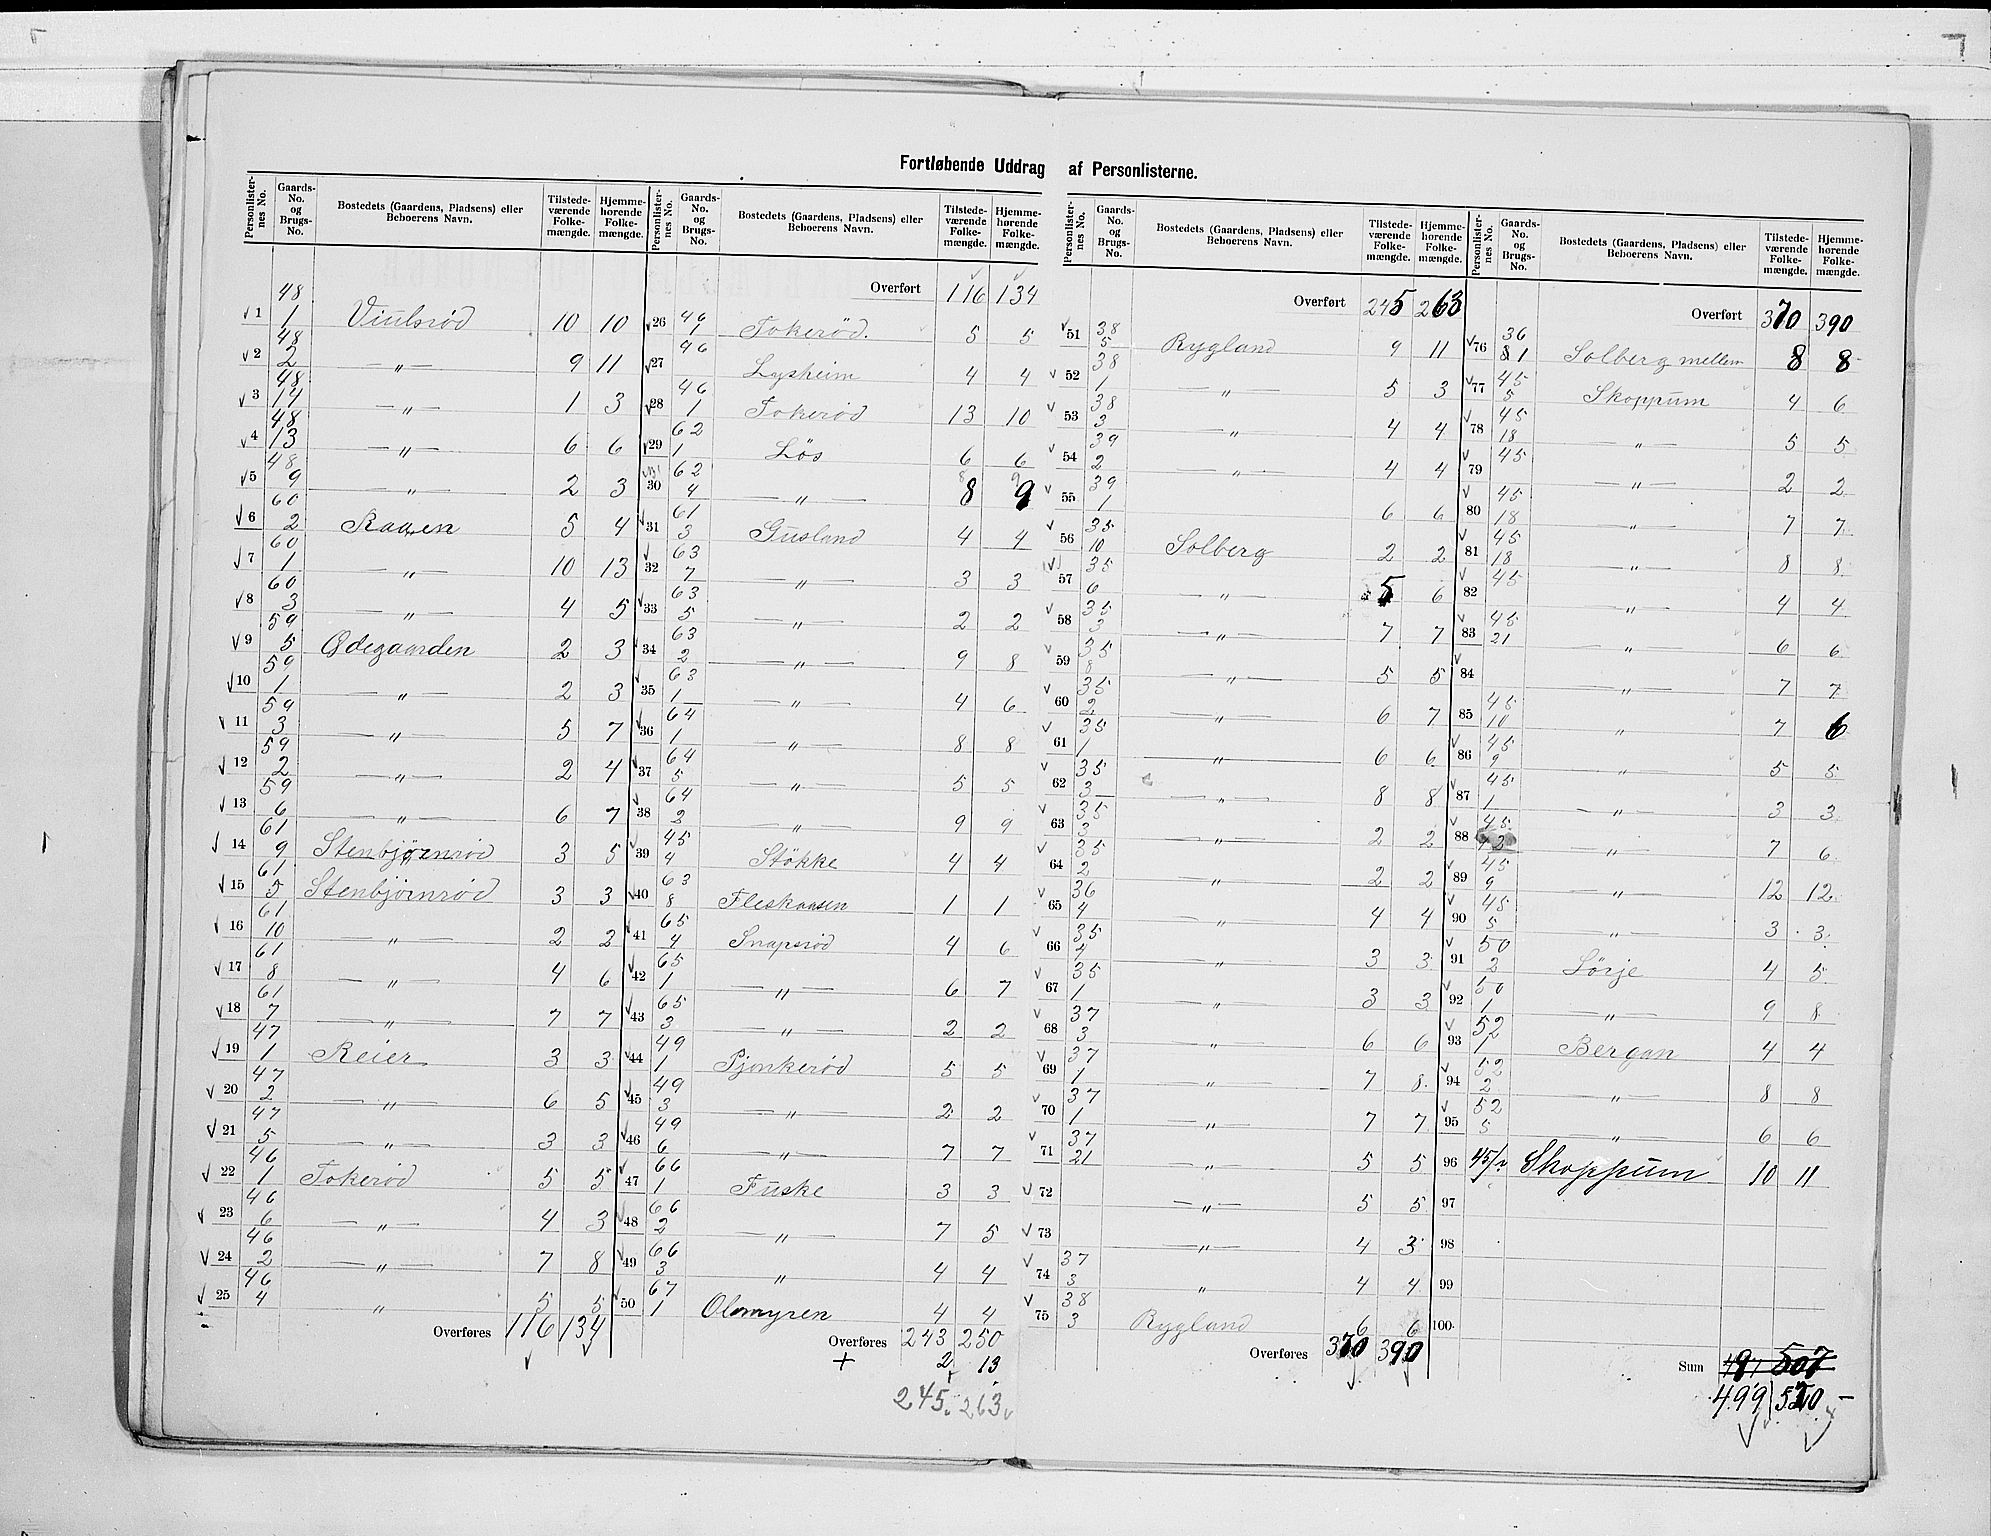 Fortløbende Uddrag af Personlisterne.
Personlister-nes No. | Gaards-No. og Brugs-No. | Bostedets (Gaardens, Pladsens) eller Beboerens Navn. | Tilstede-værende Folke-mængde. | Hjemme-hørende Folke-mængde.
1 | 48/1 | Viulsrød | 10 | 10
2 | 48/2 | —"— | 9 | 11
3 | 48/14 | —"— | 1 | 3
4 | 48/13 | —"— | 6 | 6
5 | 48/9 | —"— | 2 | 3
6 | 60/2 | | 5 | 4
7 | 60/1 | —"— | 10 | 13
8 | 60/3 | —"— | 4 | 5
9 | 59/5 | Ødegaarden | 2 | 3
10 | 59/1 | —"— | 2 | 3
11 | 59/3 | —"— | 5 | 7
12 | 59/2 | —"— | 2 | 4
13 | 59/6 | —"— | 6 | 7
14 | 61/9 | Stenbjørnrød | 3 | 5
15 | 61/5 | Stenbjørnrød | 3 | 3
16 | 61/10 | —"— | 2 | 2
17 | 61/8 | —"— | 4 | 6
18 | 61/7 | —"— | 7 | 7
19 | 47/1 | Reier | 3 | 3
20 | 47/2 | —"— | 6 | 5
21 | 47/5 | —"— | 3 | 3
22 | 46/1 | Tokerød | 5 | 5
23 | 46/6 | —"— | 4 | 3
24 | 46/2 | —"— | 7 | 8
25 | 46/4 | " | 5 | 5
Overføres 116 134
Personlister-nes No. | Gaards-No. og Brugs-No. | Bostedets (Gaardens, Pladsens) eller Beboerens Navn. | Tilstede-værende Folke-mængde. | Hjemme-hørende Folke-mængde.
Overført 116 134
26 | 46/1 | Tokerød. | 5 | 5
27 | 46 | Lysheim | 4 | 4
28 | 46/1 | Tokerød | 13 | 10
29 | 62/1 | Løs | 6 | 6
30 | 62/4 | —"— | 8 | 9
31 | 61/3 | Gusland | 4 | 4
32 | 63/7 | —"— | 3 | 3
33 | 63/5 | —"— | 2 | 2
34 | 63/2 | —"— | 9 | 8
35 | 63/1 | —"— | 4 | 6
36 | 64/1 | —"— | 8 | 8
37 | 64/5 | —"— | 5 | 5
38 | 64/2 | —"— | 9 | 9
39 | 45/4 | Støkke | 4 | 4
40 | 63/8 | Fleskaasen | 1 | 1
41 | 65/4 | Snapsrød | 4 | 6
42 | 65/1 | —"— | 6 | 7
43 | 65/3 | —"— | 2 | 2
44 | 49/1 | Pjonkerød | 5 | 5
45 | 49/3 | —"— | 2 | 2
46 | 49/6 | —"— | 7 | 7
47 | 66/1 | Fuske | 3 | 3
48 | 66/2 | —"— | 7 | 5
49 | 66/3 | " | 4 | 4
50 | 67/1 | Olomyren | 4 | 4
Overføres 243 250
+ 2 13
245 263
Personlister-nes No. | Gaards-No. og Brugs-No. | Bostedets (Gaardens, Pladsens) eller Beboerens Navn. | Tilstede-værende Folke-mængde. | Hjemme-hørende Folke-mængde.
Overført 245 263
51 | 38/5 | Rygland | 9 | 11
52 | 38/1 | —"— | 5 | 3
53 | 38/3 | —"— | 4 | 4
54 | 39/2 | —"— | 4 | 4
55 | 39/1 | | 6 | 6
56 | 35/10 | Solberg | 2 | 2
57 | 35/6 | —"— | 5 | 6
58 | 35/3 | —"— | 7 | 7
59 | 35/8 | —"— | 5 | 5
60 | 35/2 | —"— | 6 | 7
61 | 35/1 | —"— | 6 | 6
62 | 35/3 | —"— | 8 | 8
63 | 35/3 | —"— | 2 | 2
64 | 35/2 | —"— | 2 | 2
65 | 36/4 | —"— | 4 | 4
66 | 35/4 | —"— | 3 | 3
67 | 35/1 | —"— | 3 | 3
68 | 37/3 | —"— | 6 | 6
69 | 37/1 | —"— | 7 | 8
70 | 37/1 | —"— | 7 | 7
71 | 37/21 | —"— | 5 | 5
72 | | —"— | 5 | 5
73 | | —"— | 4 | 3
74 | 37/3 | " | 4 | 4
75 | 38/3 | Rygland | 6 | 6
Overføres 370 390
Personlister-nes No. | Gaards-No. og Brugs-No. | Bostedets (Gaardens, Pladsens) eller Beboerens Navn. | Tilstede-værende Folke-mængde. | Hjemme-hørende Folke-mængde.
Overført 370 390
76 | 36/1 | Solberg mellem | 8 | 8
77 | 45/5 | Skoppum | 4 | 6
78 | 45/18 | —"— | 5 | 5
79 | 45 | —"— | 2 | 2
80 | 45/18 | —"— | 7 | 7
81 | 45/18 | —"— | 8 | 8
82 | 45 | —"— | 4 | 4
83 | 45/21 | —"— | 6 | 6
84 | | —"— | 7 | 7
85 | 45/10 | " | 7 | 6
86 | 45/9 | —"— | 5 | 5
87 | 45/1 | —"— | 3 | 3
88 | 45/3 | —"— | 7 | 6
89 | 45/9 | —"— | 12 | 12
90 | 45/5 | —"— | 3 | 3
91 | 50/2 | Lørje | 4 | 5
92 | 50/1 | —"— | 9 | 8
93 | 52/1 | Bergan | 4 | 4
94 | 52/2 | —"— | 8 | 8
95 | 52/5 | —"— | 6 | 6
96 | | Skoppum | 10 | 11
97
98
99
100
Sum 497 507
499 520